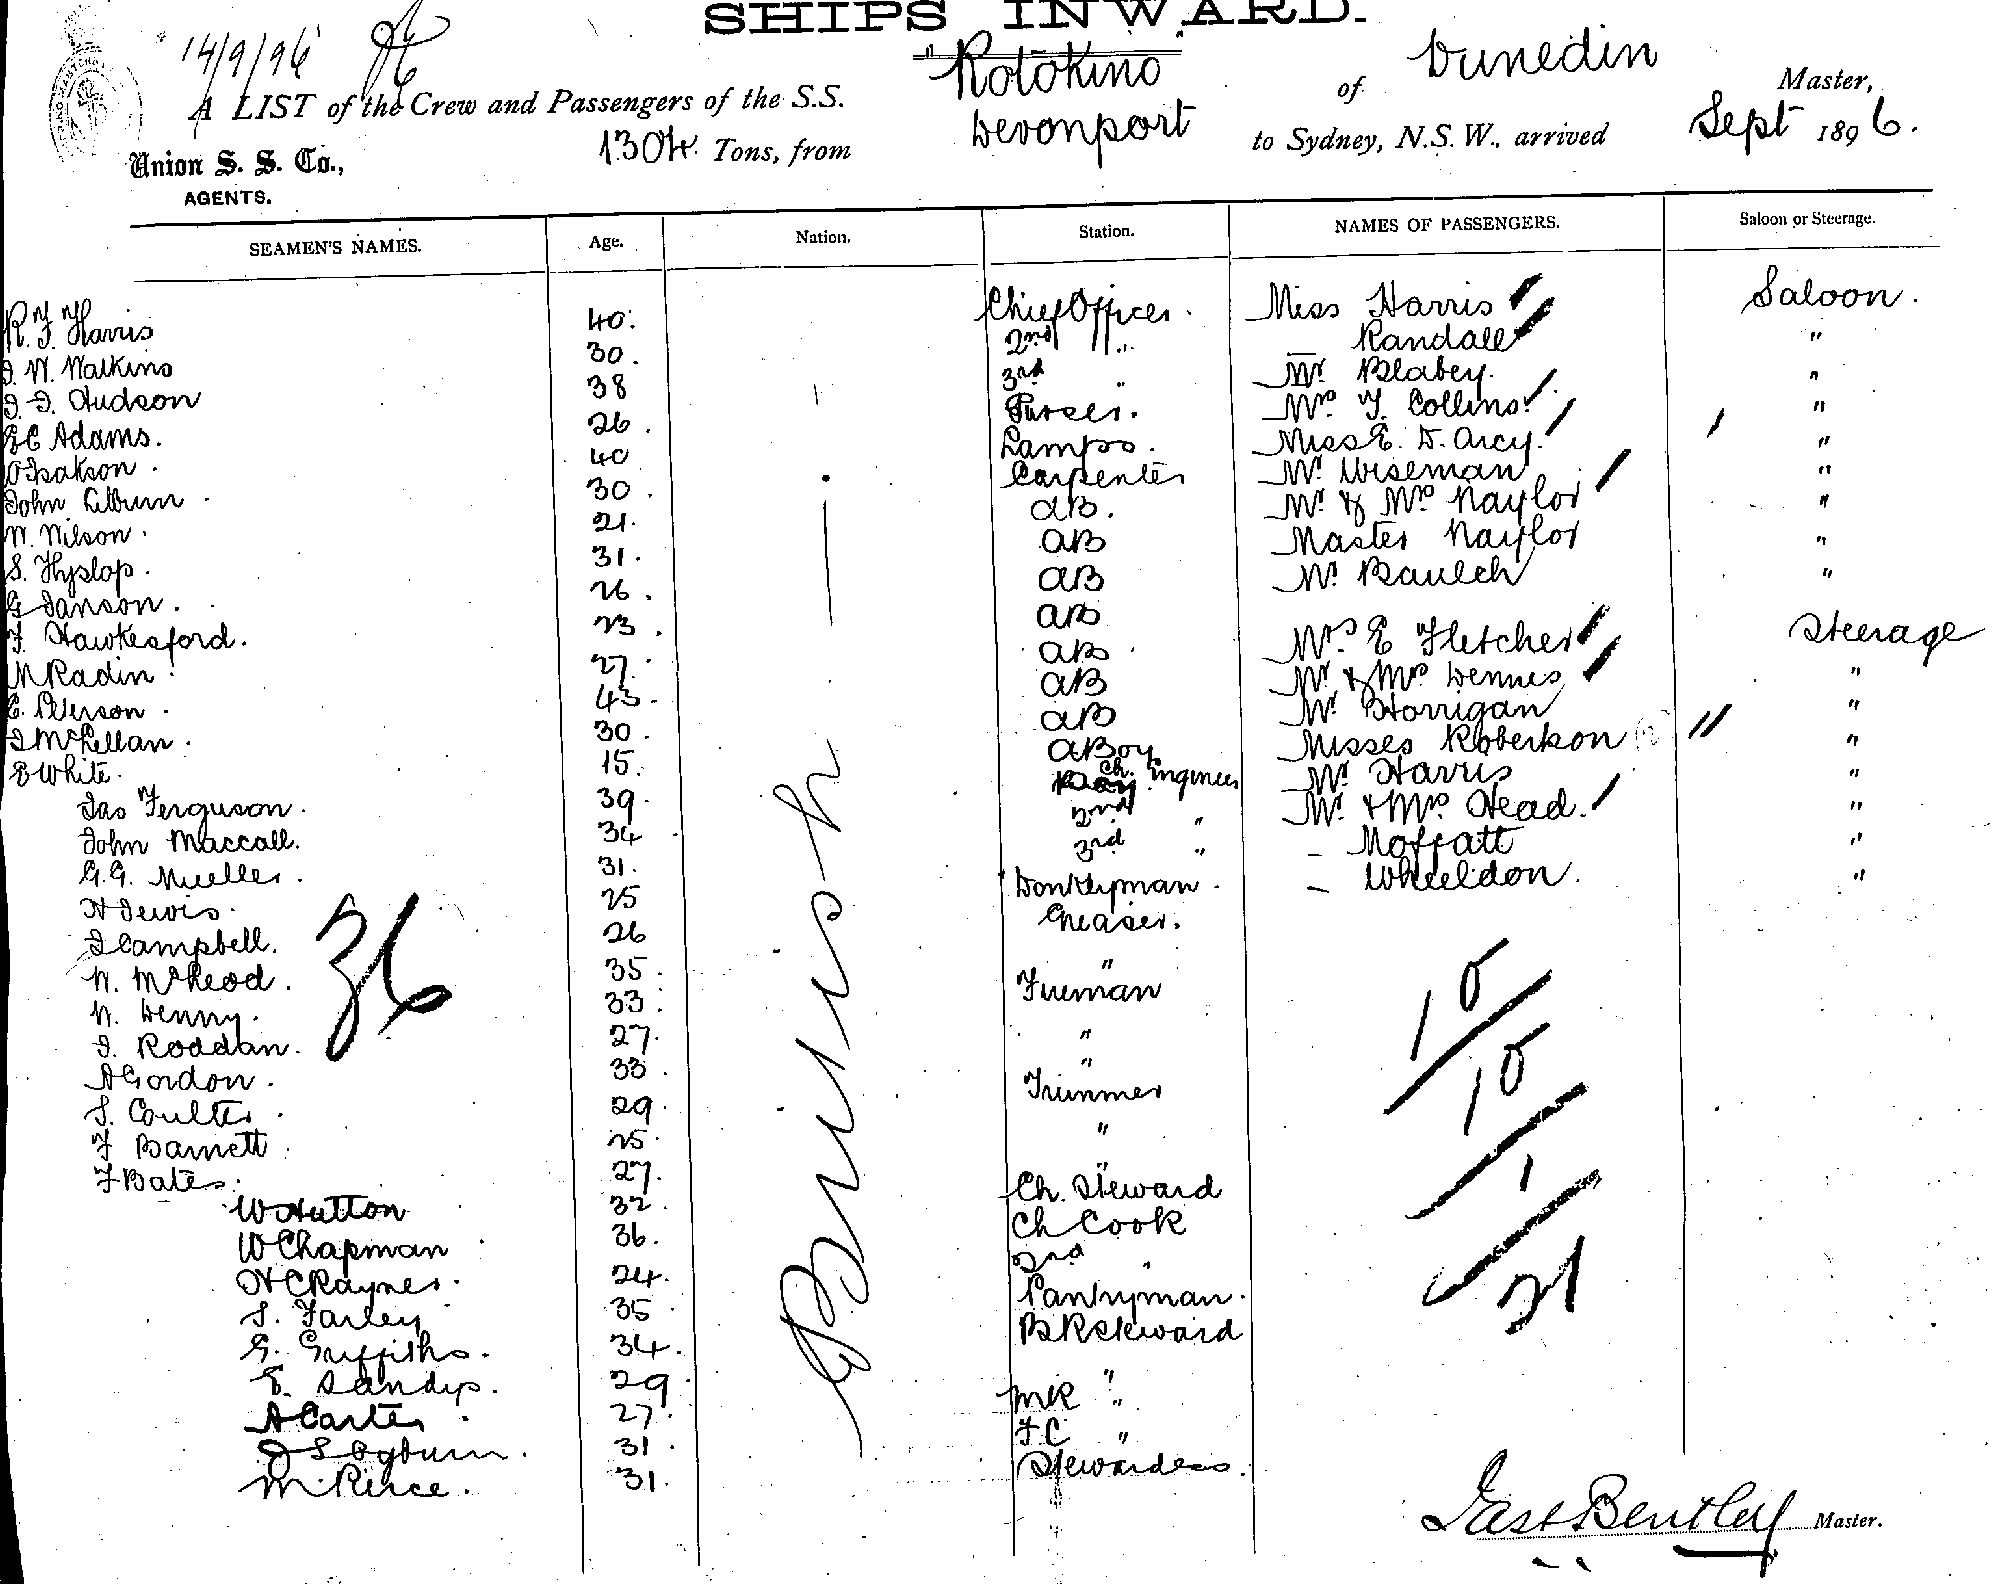 SHIPS INWARD.
14/9/96
"Rotokino of Dunedin Master,
A LIST of the Crew and Passengers of the S.S.
1304. Tons, from Devonport to Sydney, N.S.W., arrived Sept 1896.
Union S. S. Co.,
AGENTS.
SEAMEN'S NAMES. Age. Nation. Station. NAMES OF PASSENGERS. Saloon or Steerage.
R. F. Harris 40. Chief Officer. Miss Harris Saloon.
J. W. Watkins 30. 2nd " Randall "
J. J. Hudson 38 3rd " Mr Blabey. "
E C Adams. 26. Purser. Mrs T. Collins. "
O Isakson. 40 Lamps. Miss E. D. Arcy. "
John Lilburn 30. Carpenter Mr Wiseman "
W. Wilson. 21. AB. Mr & Mrs Naylor "
S. Hyslop. 31. AB Master Naylor "
G Janson. 26. AB Mr Baulch "
F. Hawkesford. 23. AB Mrs E Fletcher Steerage
M Radin. 27. AB Mr & Mrs Dennes "
E. Peterson. 43. AB Mr Horrigan "
J McLellan. 30. AB Misses Robertson (2) "
E White. 15. A Boy Mr Harris "
Jas Ferguson. 39. Ch. Engineer Mr & Mrs Head. "
John Maccall. 34 2nd " – Moffatt "
G. G. Mueller. 31. 3rd " – Wheeldon. "
H Lewis. 25 Donkeyman.
J Campbell. 26 Greaser.
N. McLeod. 35. "
N. Denny. 33. Fireman
J. Roddan. 27. "
A Gordon. 33. "
S. Coulter 29. Trimmer
F Barnett 25. "
F Bates. 27. "
W Hutton 32. Ch. Steward
W Chapman 36. Ch Cook
H C Rayner. 24. 2nd "
S. Farley 35 Pantryman.
G. Griffiths. 34. B R Steward
E. Sandys. 29 "
A Carter. 27. M R "
J S Ogburn. 31. F C "
M Pierce. 31. Stewardess.
British
36
10
10
1
21
Jas Bentley Master.